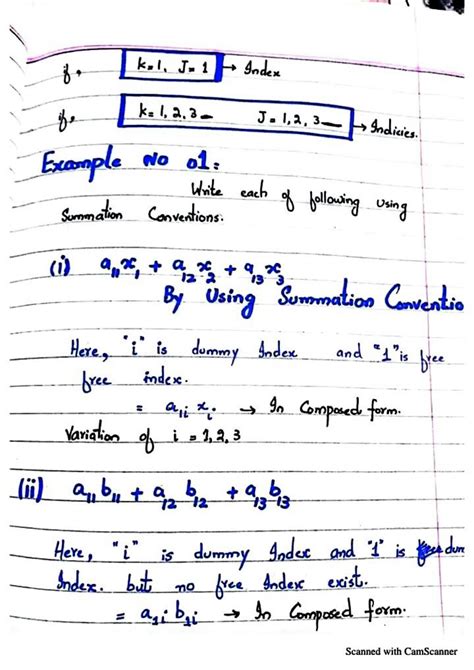 if, k=1, J=1 → Index
if, k=1,2,3— J=1,2,3— → Indicies.
Example No 01:
Write each of following using
Summation Conventions.
(i) a₁₁x₁ + a₁₂x₂ + a₁₃x₃
By Using Summation Conventio
Here, "i" is dummy Index and "1" is free
free index.
= a₁ᵢ xᵢ → In Composed form.
Variation of i = 1,2,3
(ii) a₁₁b₁₁ + a₁₂b₁₂ + a₁₃b₁₃
Here, "i" is dummy Index and "1" is dum
Index. but no free Index exist.
= a₁ᵢ b₁ᵢ → In Composed form.
Scanned with CamScanner